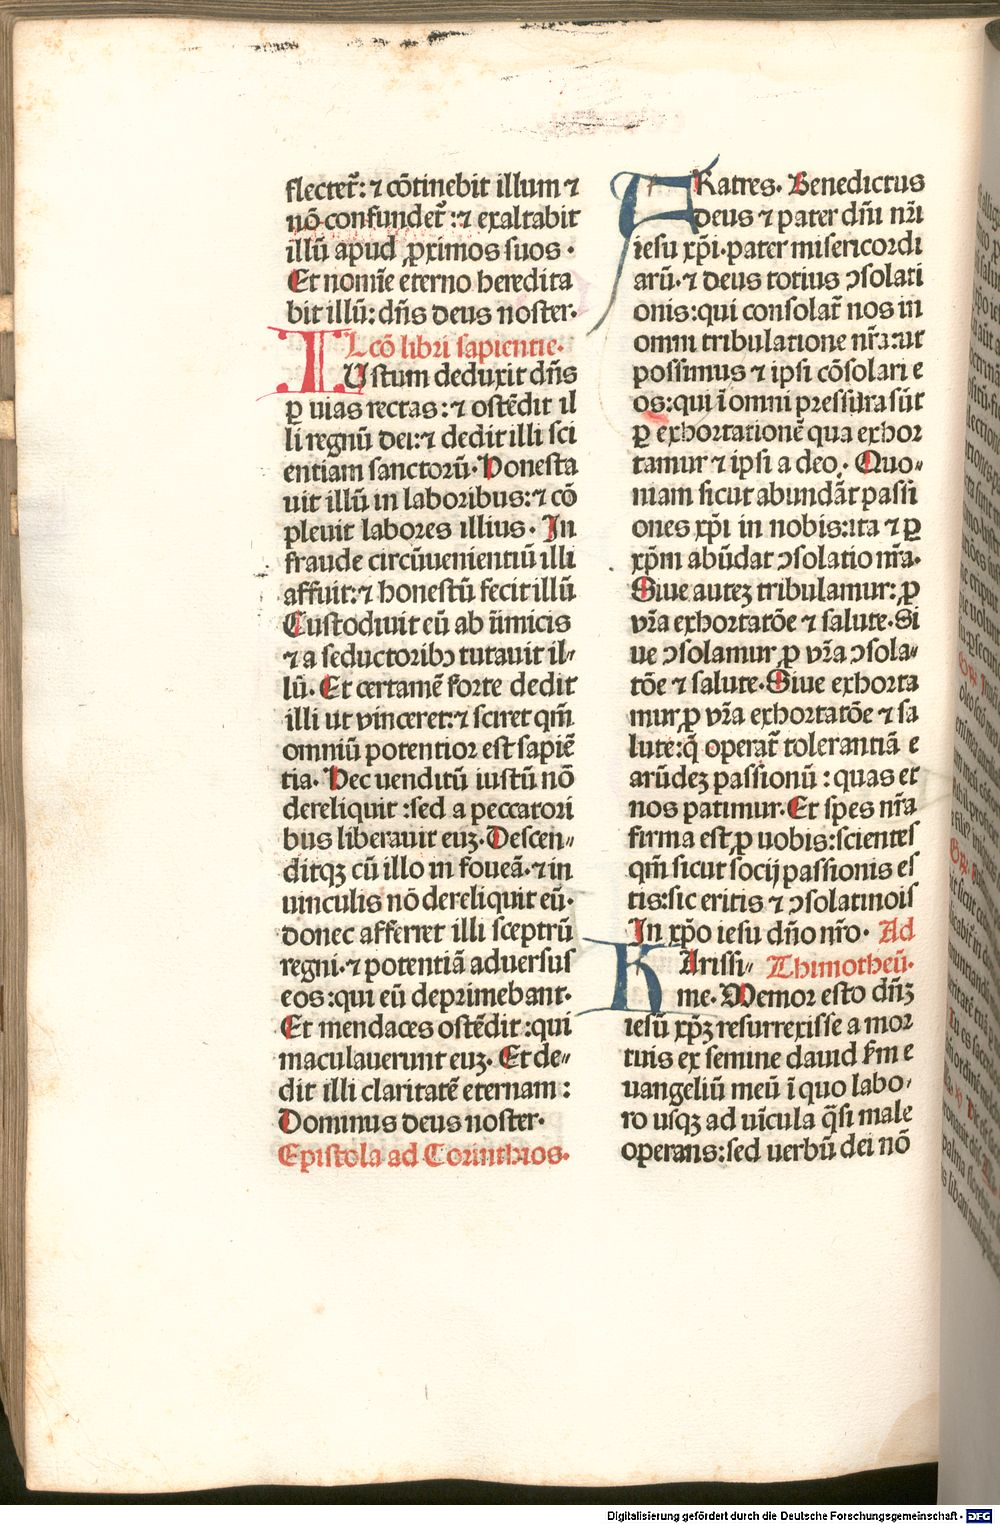 flectet᷑: ⁊ cōtinebit illum ⁊
nō confundet᷑ : ⁊ exaltabit
illū apud ꝓximos suos .
Et nomīe eterno heredita
bit illū: dn̄s deus noster.
Lcō libri sapientie.
IUstum deduxit dn̄s
ꝑ uias rectas : ⁊ ostēdit il
li regnū dei: ⁊ dedit illi sci
entiam sanctorū. Honesta
uit illū in laboribus: ⁊ cō
pleuit labores illius . In
fraude circūuenientiū illi
affuit: ⁊ honestū fecit illū
Custodiuit eū ab īimicis
⁊ a seductoribꝫ tutauit il⸗
lū. Et certamē forte dedit
illi ut vinceret: ⁊ sciret qm̄
omniū potentior est sapiē
tia. Hec uenditū iustū nō
dereliquit : sed a peccatori
bus liberauit euꝫ. Descen⸗
ditqꝫ cū illo in foueā. ⁊ in
uinculis nō dereliquit eū.
donec afferret illi sceptrū
regni. ⁊ potentiā aduersus
eos : qui eū deprimebant.
Et mendaces ostēdit : qui
maculauerunt euꝫ. Et de⸗
dit illi claritatē eternam :
Dominus deus noster.
Epistola ad Corinthios.
FRatres. Benedictus
deus ⁊ pater dn̄i nr̄i
iesu xp̄i. pater misericordi
arū. ⁊ deus totius ↄsolati
onis: qui consolat᷑ nos in
omni tribulatione nr̄a: ut
possimus ⁊ ipsi cōsolari e
os: qui ī omni pressura sūt
ꝑ exhortationē qua exhor
tamur ⁊ ipsi a deo. Quo⸗
niam sicut abundāt passi
ones xp̄i in nobis: ita ⁊ ꝑ
xp̄m abūdat ↄsolatio nr̄a.
Siue auteꝫ tribulamur: ꝓ
vr̄a exhortatōe ⁊ salute. Si
ue ↄsolamur ꝓ vr̄a ↄsola⸗
tōe ⁊ salute. Siue exhorta
mur ꝓ vr̄a exhortatōe ⁊ sa
lute: q̄ operat᷑ tolerantiā e
arūdeꝫ passionū : quas et
nos patimur. Et spes nr̄a
firma est ꝓ uobis: scientes
qm̄ sicut socij passionis es
tis: sic eritis ⁊ ↄsolatinois
In xp̄o iesu dn̄o nr̄o. Ad
KArissi⸗ Thimotheū.
me. Memor esto dn̄ꝫ
iesū xp̄ꝫ resurrexisse a mor
tuis ex semine dauid km̄ e
uangeliū meū ī quo labo⸗
ro usqꝫ ad uīcula q̄si male
operans: sed uerbū dei nō
Digitalisierung gefördert durch die Deutsche Forschungsgemeinschaft - DFG